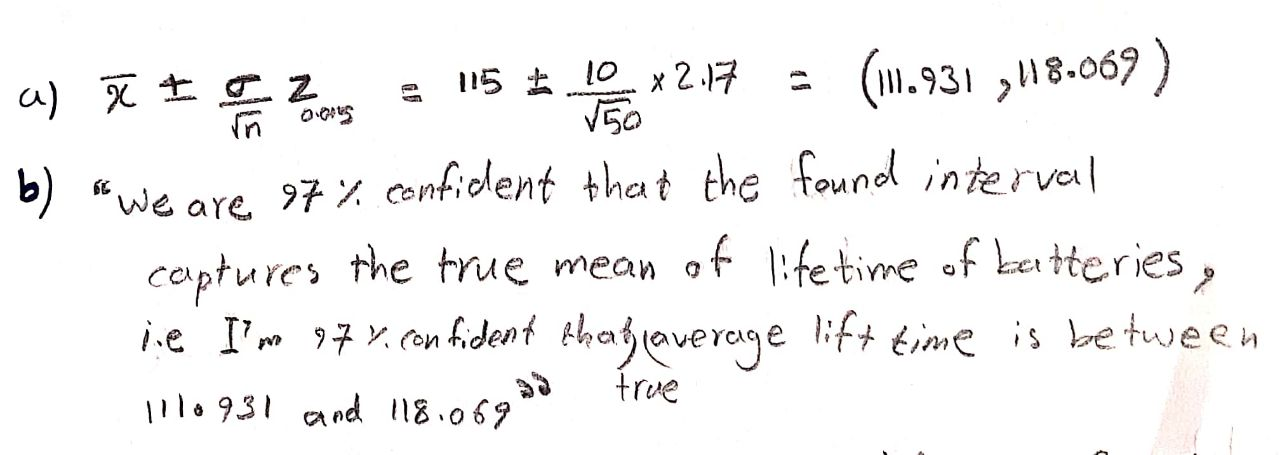 a) x̄ ± σ/√n Z0.015 = 115 ± 10/√50 × 2.17 = (111.931 , 118.069)
b) “We are 97 % confident that the found interval
captures the true mean of lifetime of batteries,
i.e I'm 97 % confident that true average lift time is between
111.931 and 118.069”